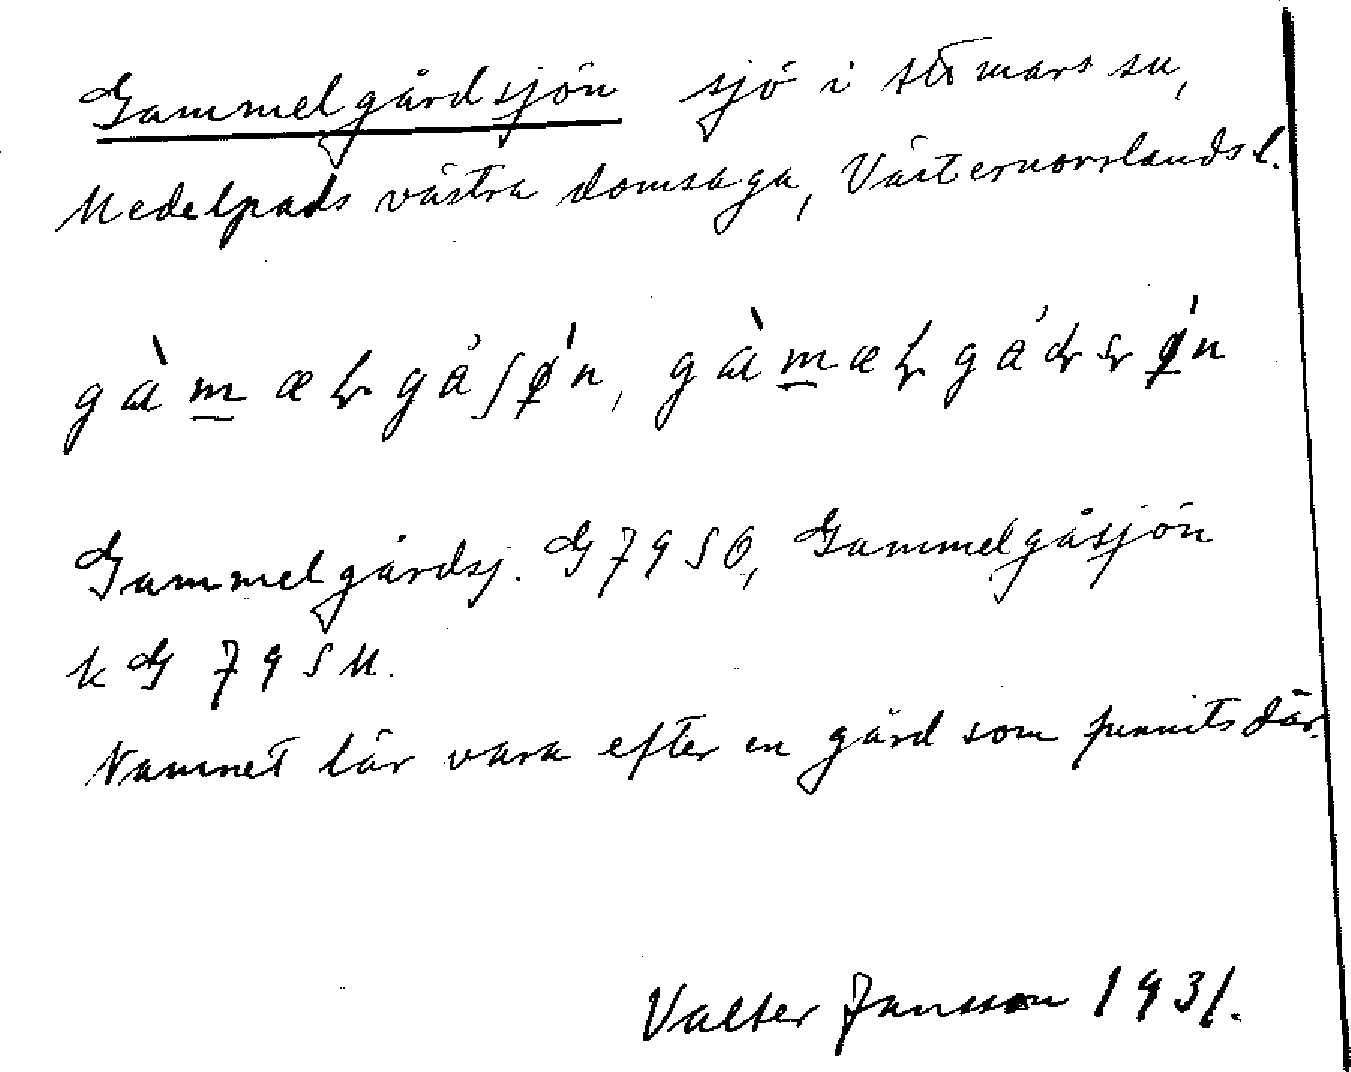 Gammelgårdsjön sjö i Attmars sn,
Medelpads västra domsaga, Västernorrlands l.
Gammelgårdsj. G 79 SO, Gammelgåsjön
k G 79 SU.
Namnet lär vara efter en gård som funnits där.
Valter Jansson 1931.